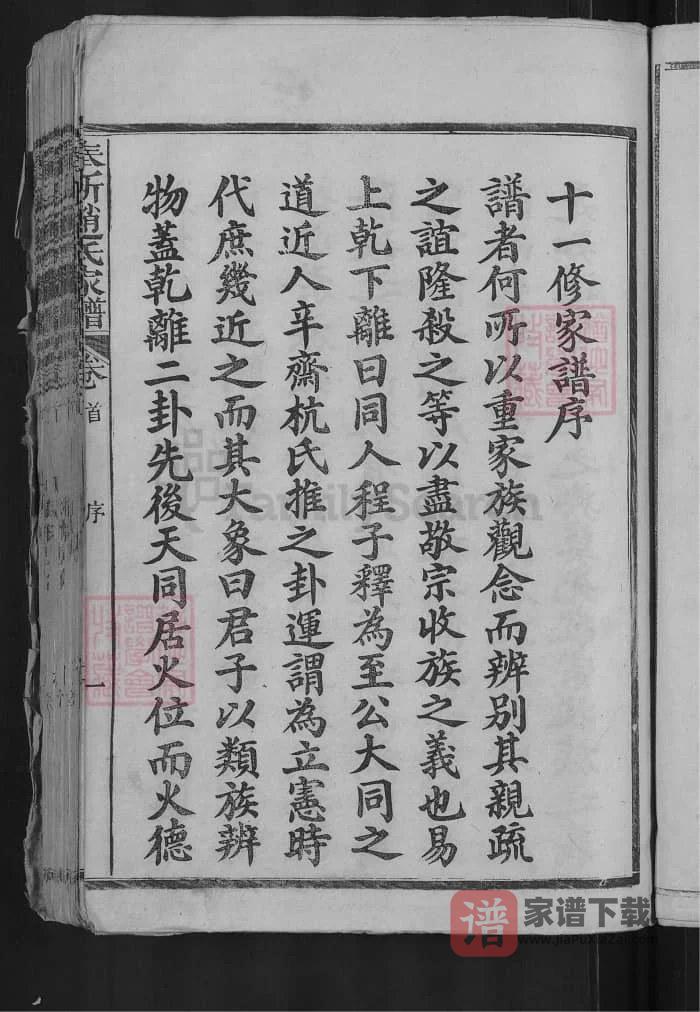 十一修家譜序
譜者何所以重家族觀念而辨別其親疏
之誼隆殺之等以盡敬宗收族之義也易
上乾下離曰同人程子釋為至公大同之
道近人辛齋杭氏推之卦運謂為立憲時
代庶幾近之而其大象曰君子以類族辨
物蓋乾離二卦先後天同居火位而火德
趙氏家譜
卷首
序
一
Family Search
谱
家谱下载
www.jiaPuXiaZai.com